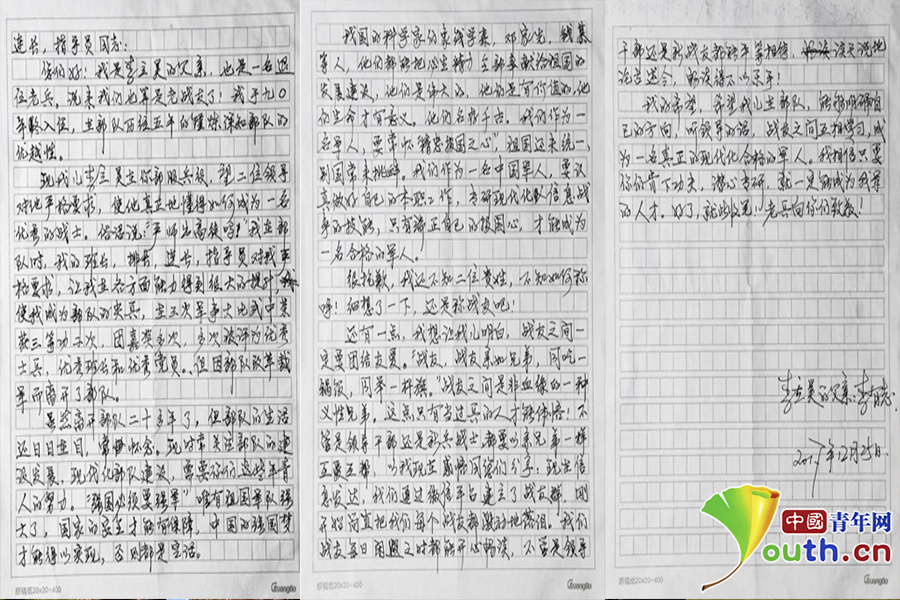 连长,指导员同志:
你们好!我是李立昊的父亲,也是一名退
伍老兵。说来我们也算是老战友了!我于九〇
年龄入伍,在部队历经五年的
优越性。
现我儿李立昊在你部服兵役,望二位领导
对他严格要求,使他真正地懂得如何成为一名
优秀的战士。俗话说:"严师出高徒吗!"我在部
队时,我的班长,排长,连长,指导员对我严
格要求,让我在各方面能力得到很大的提升,
使我成为部队的尖兵,在三次军事大比武中荣
获三等功二次,团嘉奖多次,多次被评为优秀
士兵,优秀班长和优秀党员。但因部队改革裁
军而离开了部队。
虽然离开部队二十多年了,但部队的生活
还日日在目,常想怀念。现时常关注部队的建
设发展。现代化部队建设,需要你们这些年青
人的努力。"强国必须要强军"唯有祖国军队强
大了,国家的安全才能有保障,中国的强国梦
才能得以实现,否则都是空话。
我国的科学家们家钱学森,邓家先,钱某
等人,他们都能把毕生精力全部奉献给祖国的
发展建设,他们是伟大的,他们是有价值的,他
们的生命才有意义。他们名扬千古。我们作为一
名军人,要常怀"精忠报国之心",祖国还未统一,
别国常来挑衅。我们作为一名中国军人,要认
真做好自己的本职工作,专研现代化部队信息战
争的技能,只有端正自己的报国心,才能成为
一名合格的军人。
很抱歉,我还不知二位贵姓,不知如何称
呼!细想了一下,还是称战友吧!
还有一点,我想让我儿明白,战友之间一
定要团结友爱。"战友,战友亲如兄弟,同吃一
锅饭,同举一杆旗。"战友之间是非血缘的一种
义性兄弟,这点只有当过兵的人才能体悟!不
管是领导干部还是新兵战士都要以亲兄弟一样
互爱互帮。以我现在感悟同你们分享:现在信
息发达,我们通过微信平台建立了战友群,刚
开始简直把我们每个战友都激动地落泪。我们
战友每日闲暇之时都能开心畅谈,不管是领导
干部还是新战友都能平等相待,谈天说地
论古述今,畅谈得不亦乐乎!
我的希望,希望我儿在部队,能够明确自
己的方向,听领导的话,战友之间互相学习,成
为一名真正的现代化合格的军人。我相信只要
你们肯下功夫,潜心专研,就一定能成为我军
的人才。好了,就此收笔,老兵向你们致敬!
李立昊的父亲:李有志
2017年12月25日
原稿纸20×20=400
Guangbo
原稿纸20×20=400
Guangbo
中國青年网
Youth.cn